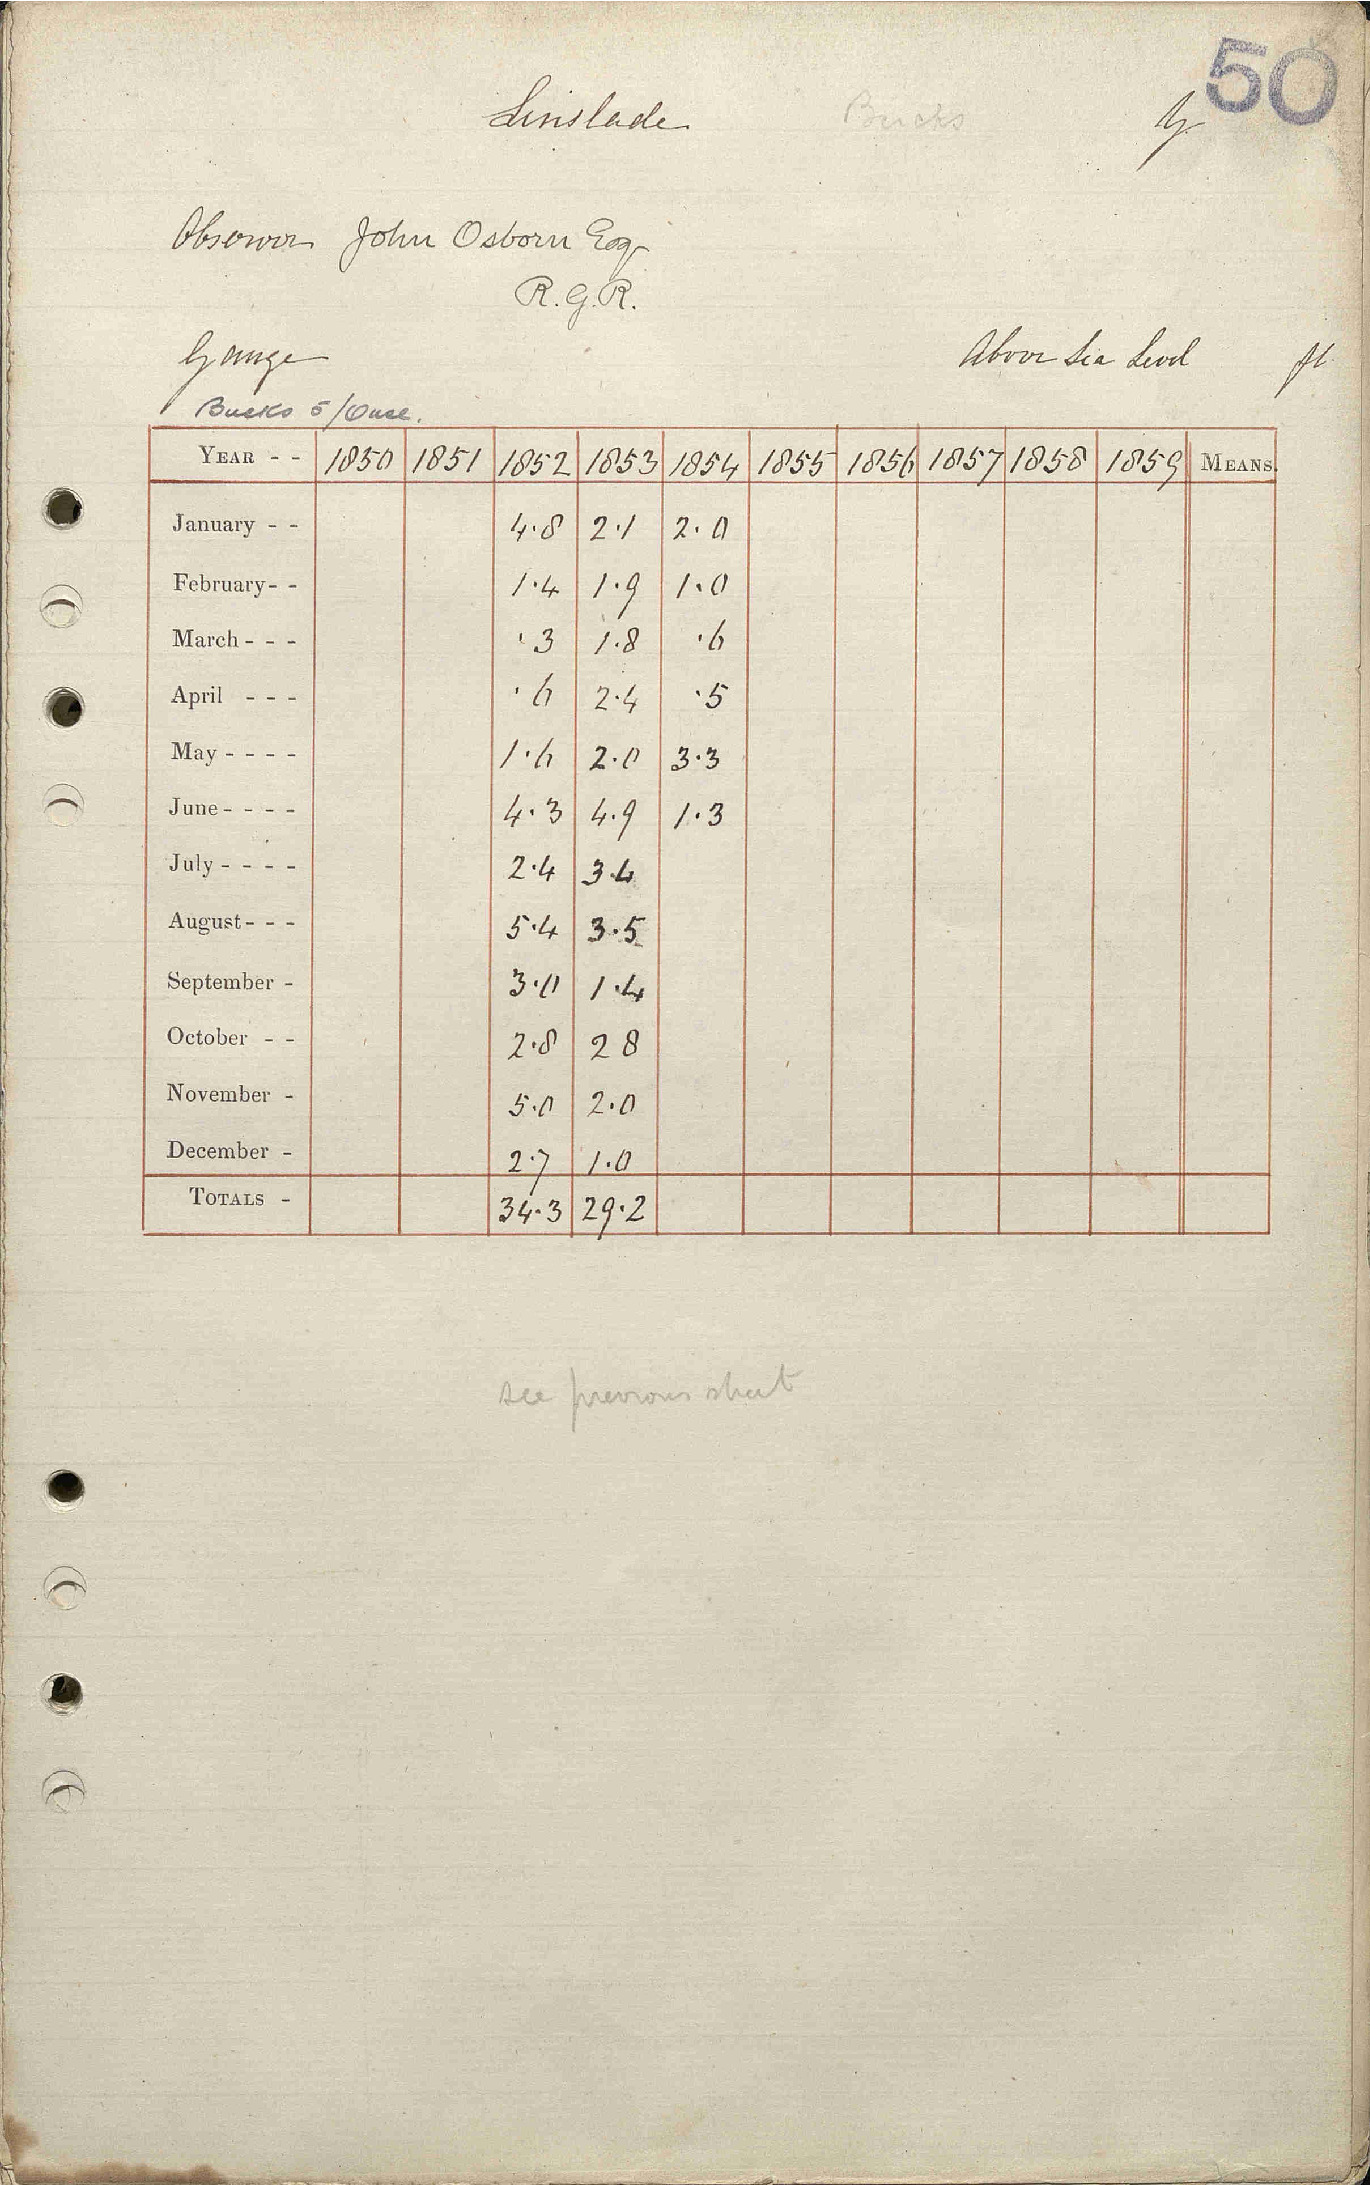 50
Linslade Bucks
Observer John Osborn Esq
R.G.R.
Gauge Above Sea Level ft
Bucks 5/Ouse.
YEAR - - 1850 1851 1852 1853 1854 1855 1856 1857 1858 1859 MEANS.
January - - 4.8 2.1 2.0
February - - 1.4 1.9 1.0
March - - - .3 1.8 .6
April - - - .6 2.4 .5
May - - - - 1.6 2.0 3.3
June - - - - 4.3 4.9 1.3
July - - - - 2.4 3.4
August - - - 5.4 3.5
September - 3.0 1.4
October - - 2.8 2 8
November - 5.0 2.0
December - 2.7 1.0
TOTALS - 34.3 29.2
see previous sheet